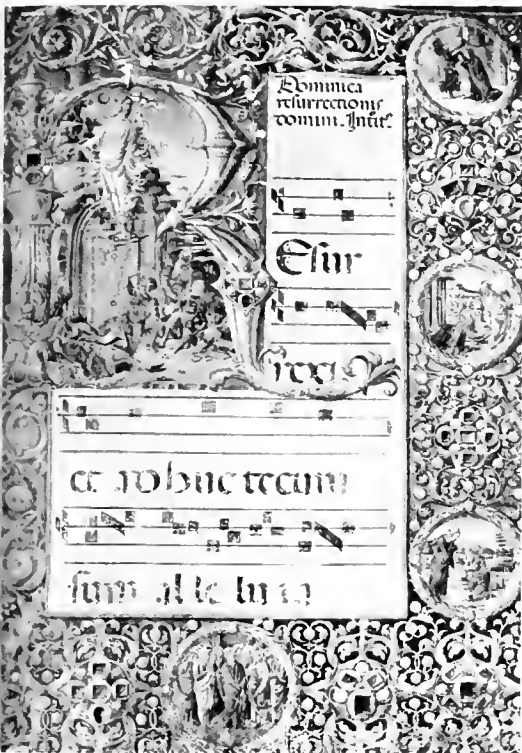 Dominica
resurrectionis
domini. Introit.
Esur
rexi
et adhuc tecum
sum al le lu ia